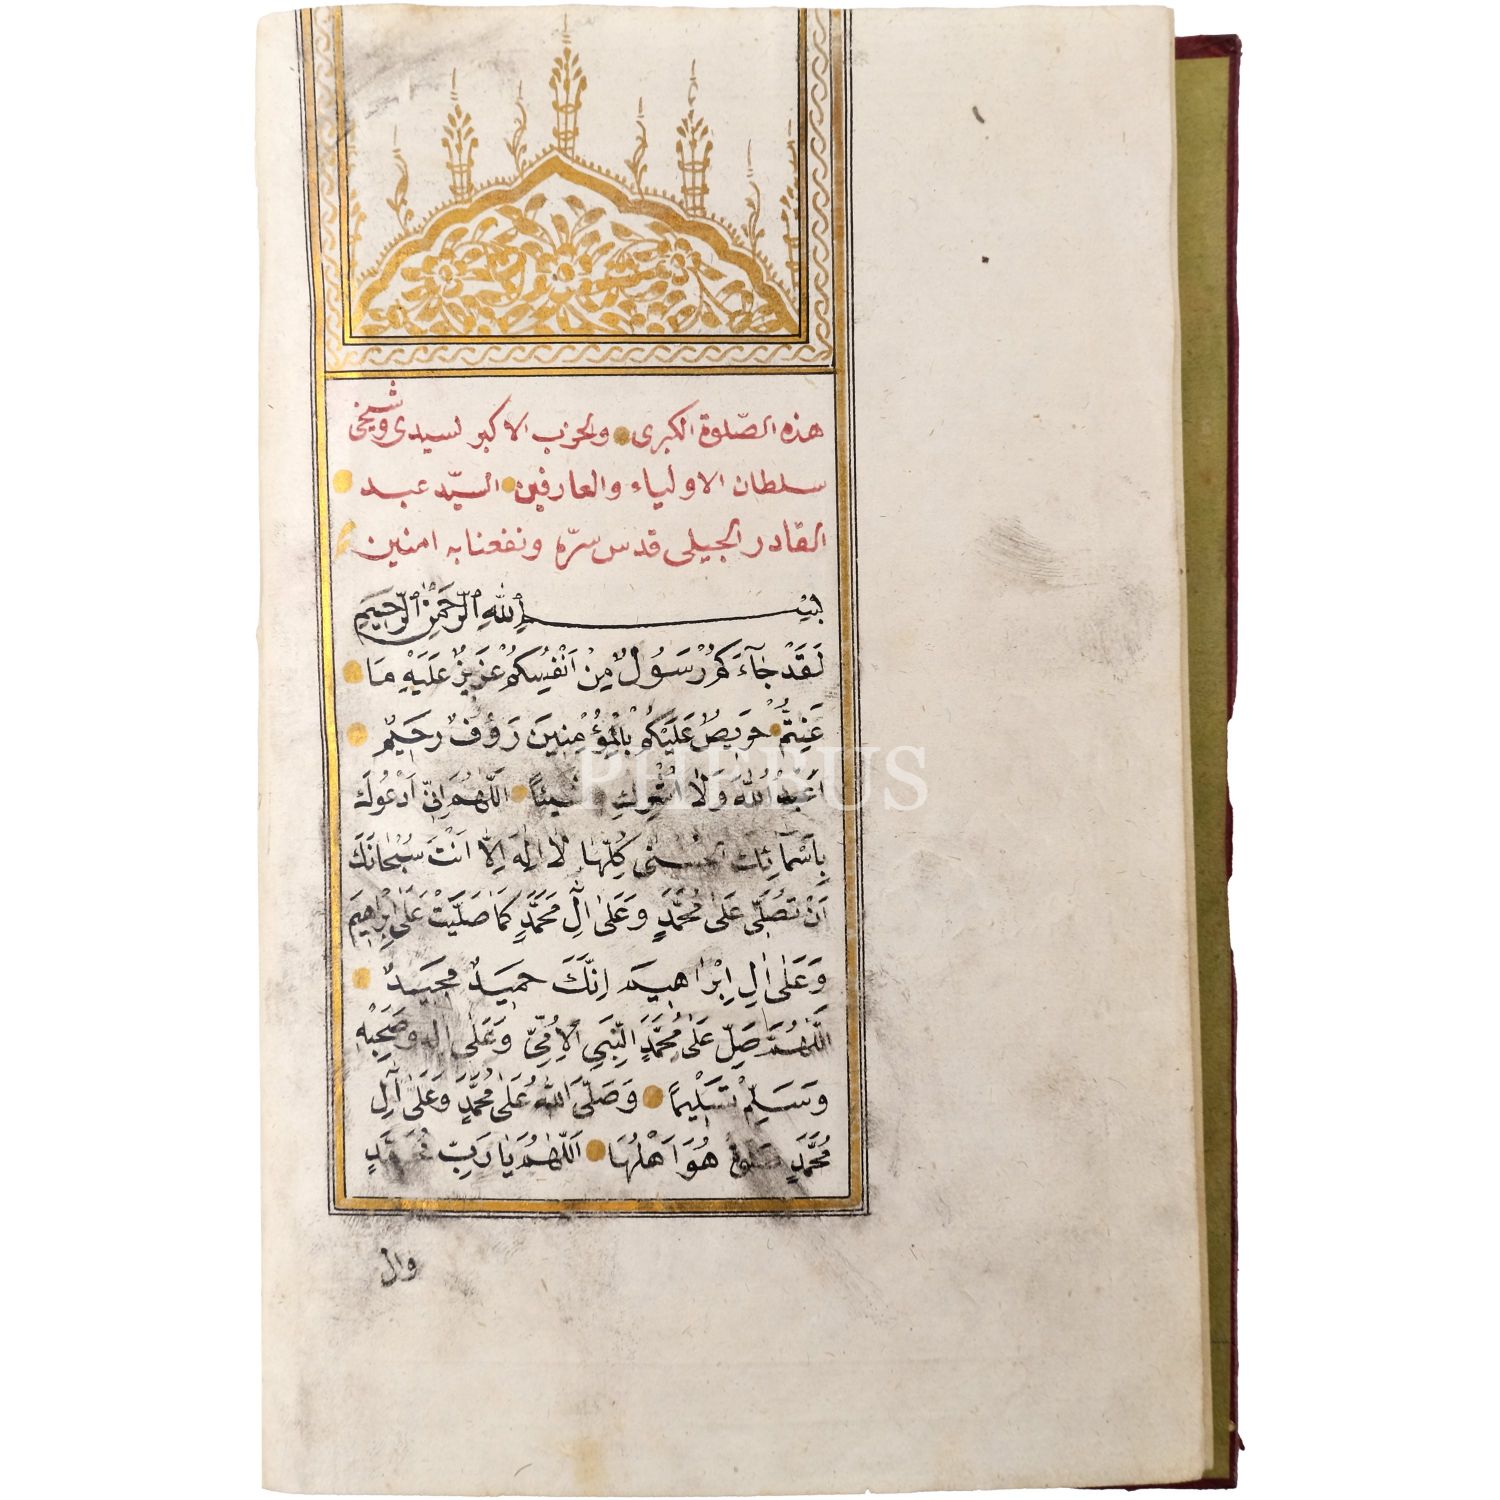 هذه الصّلوة الكبرى والحزب الاكبر لسيدى وشيخى
سلطان الاولياء والعارفين السيّد عبد
القادر الجيلى قدس سرّه ونفعنا به امنين
بِسْمِ اللهِ الرَّحْمٰنِ الرَّحِيمِ
لَقَدْ جَآءَكُمْ رَسُولٌ مِنْ اَنْفُسِكُمْ عَزِيزٌ عَلَيْهِ مَا
عَنِتُّمْ حَرِيصٌ عَلَيْكُمْ بِالْمُؤْمِنِينَ رَؤُفٌ رَحِيمٌ
اَعْبُدُ اللهَ وَلَا اُشْرِكُ شَيْئًا اَللّٰهُمَّ اِنِّى اَدْعُوكَ
بِاَسْمَآئِكَ الحُسْنٰى كُلِّهَا لَا اِلٰهَ اِلَّا اَنْتَ سُبْحَانَكَ
اَنْ تُصَلِّىَ عَلٰى مُحَمَّدٍ وَعَلٰى اٰلِ مُحَمَّدٍ كَمَا صَلَّيْتَ عَلٰى اِبْرٰاهِيمَ
وَعَلٰى اٰلِ اِبْرٰاهِيمَ اِنَّكَ حَمِيدٌ مَجِيدٌ
اَللّٰهُمَّ صَلِّ عَلٰى مُحَمَّدٍ النَّبِىِّ الْاُمِّىِّ وَعَلٰى اٰلِهِ وَصَحْبِهِ
وَسَلِّمْ تَسْلِيمًا وَصَلَّى اللهُ عَلٰى مُحَمَّدٍ وَعَلٰى اٰلِ
مُحَمَّدٍ صَلٰوةً هُوَ اَهْلُهَا اَللّٰهُمَّ يَا رَبَّ مُحَمَّدٍ
وال
PHEBUS